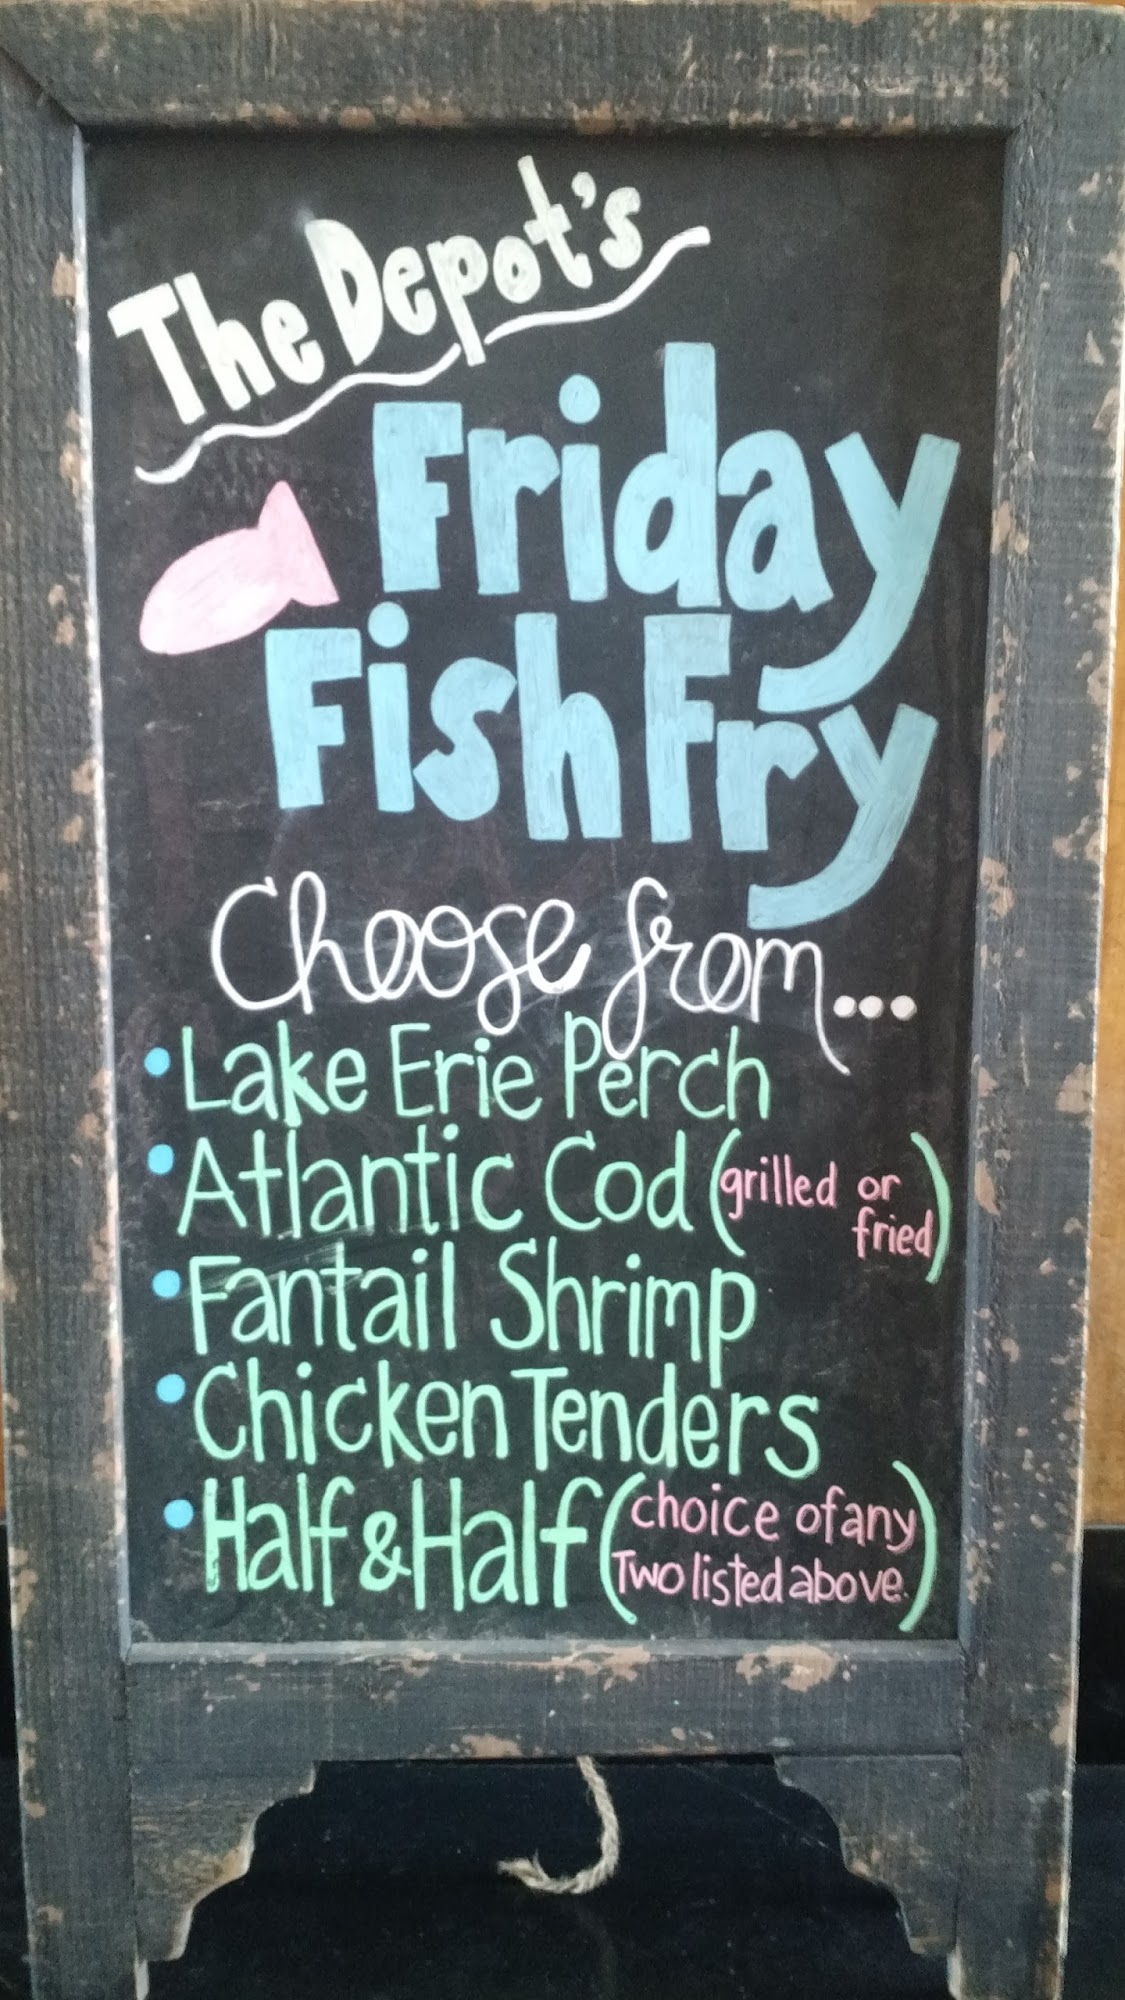 The Depot's
Friday
Fish Fry
Choose from...
• Lake Erie Perch
• Atlantic Cod (grilled or
fried)
• Fantail Shrimp
• Chicken Tenders
• Half & Half (choice of any
Two listed above.)